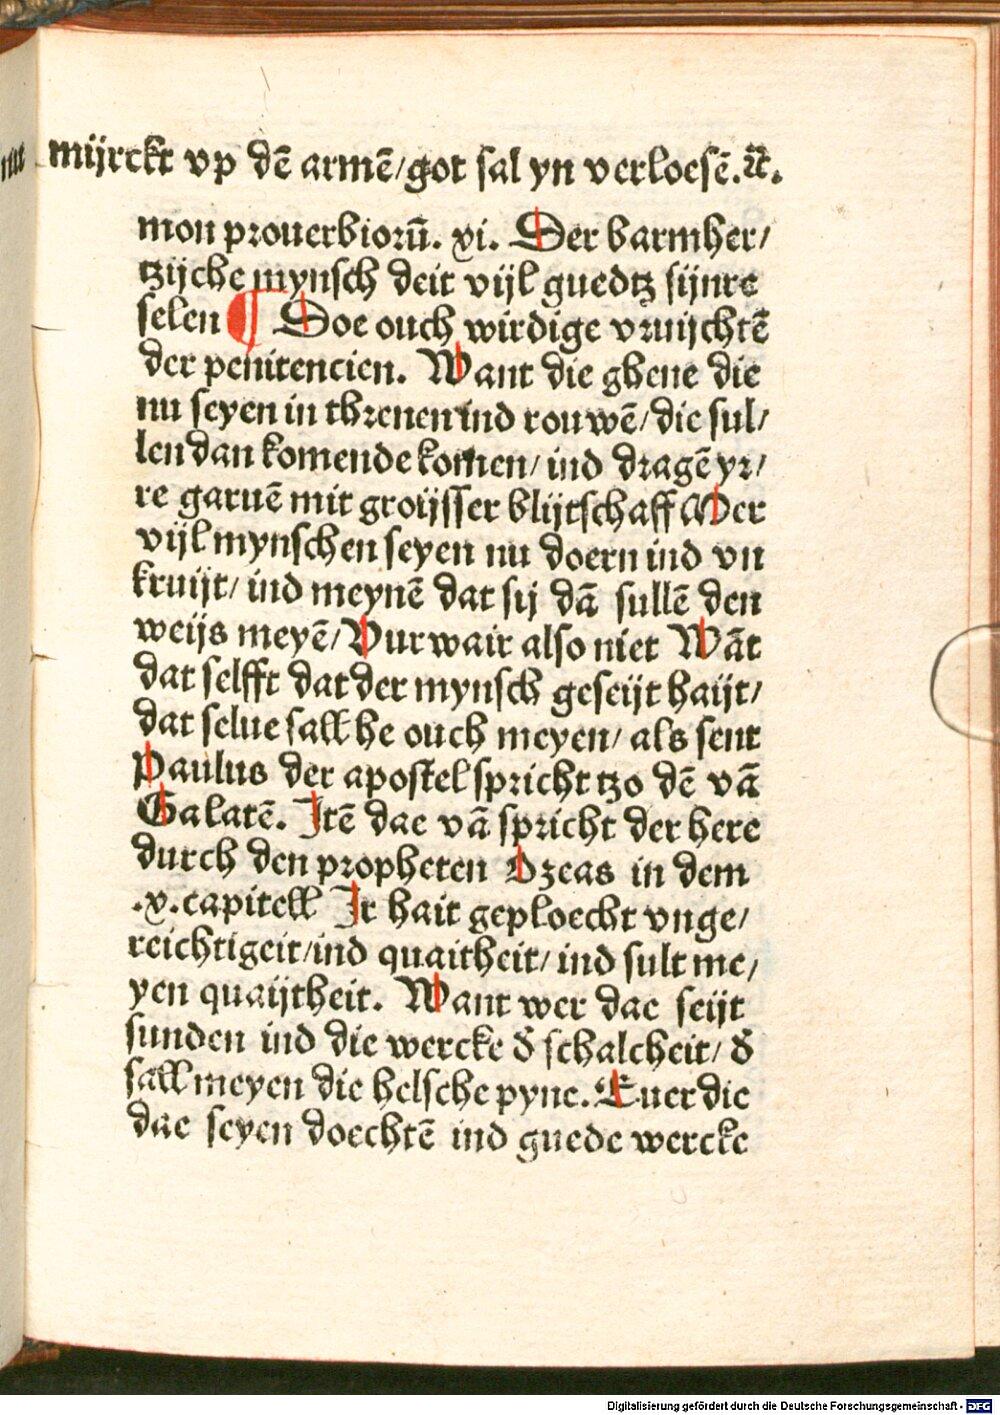 mijrckt vp dē armē/got sal yn verloesē.
mon prouerbiorū. xi. Der barmher/
tzijche mynsch deit vijl guedtz sijnre
selen ¶ Doe ouch wirdige vruijchtē
der penitencien. Want die ghene die
nu seyen in threnen ind rouwē/ die sul/
len dan komende komen/ ind dragē yr/
re garuē mit groijsser blijtschaff Mer
vijl mynschen seyen nu doern ind vn
kruijt/ ind meynē dat sij dā sullē den
weijs meyē/ Vurwair also niet Wāt
dat selfft dat der mynsch geseijt haijt/
dat selue sall he ouch meyen/ als sent
Paulus der apostel spricht tzo dē vā
Galatē. Itē dae vā spricht der here
durch den propheten Ozeas in dem
.x. capitell Ir hait geploecht vnge/
reichtigeit/ind quaitheit/ ind sult me/
yen quaijtheit. Want wer dae seijt
sunden ind die wercke d̕ schalcheit/ d̕
sall meyen die helsche pyne. Euer die
dae seyen doechtē ind guede wercke
Digitalisierung gefördert durch die Deutsche Forschungsgemeinschaft - DFG